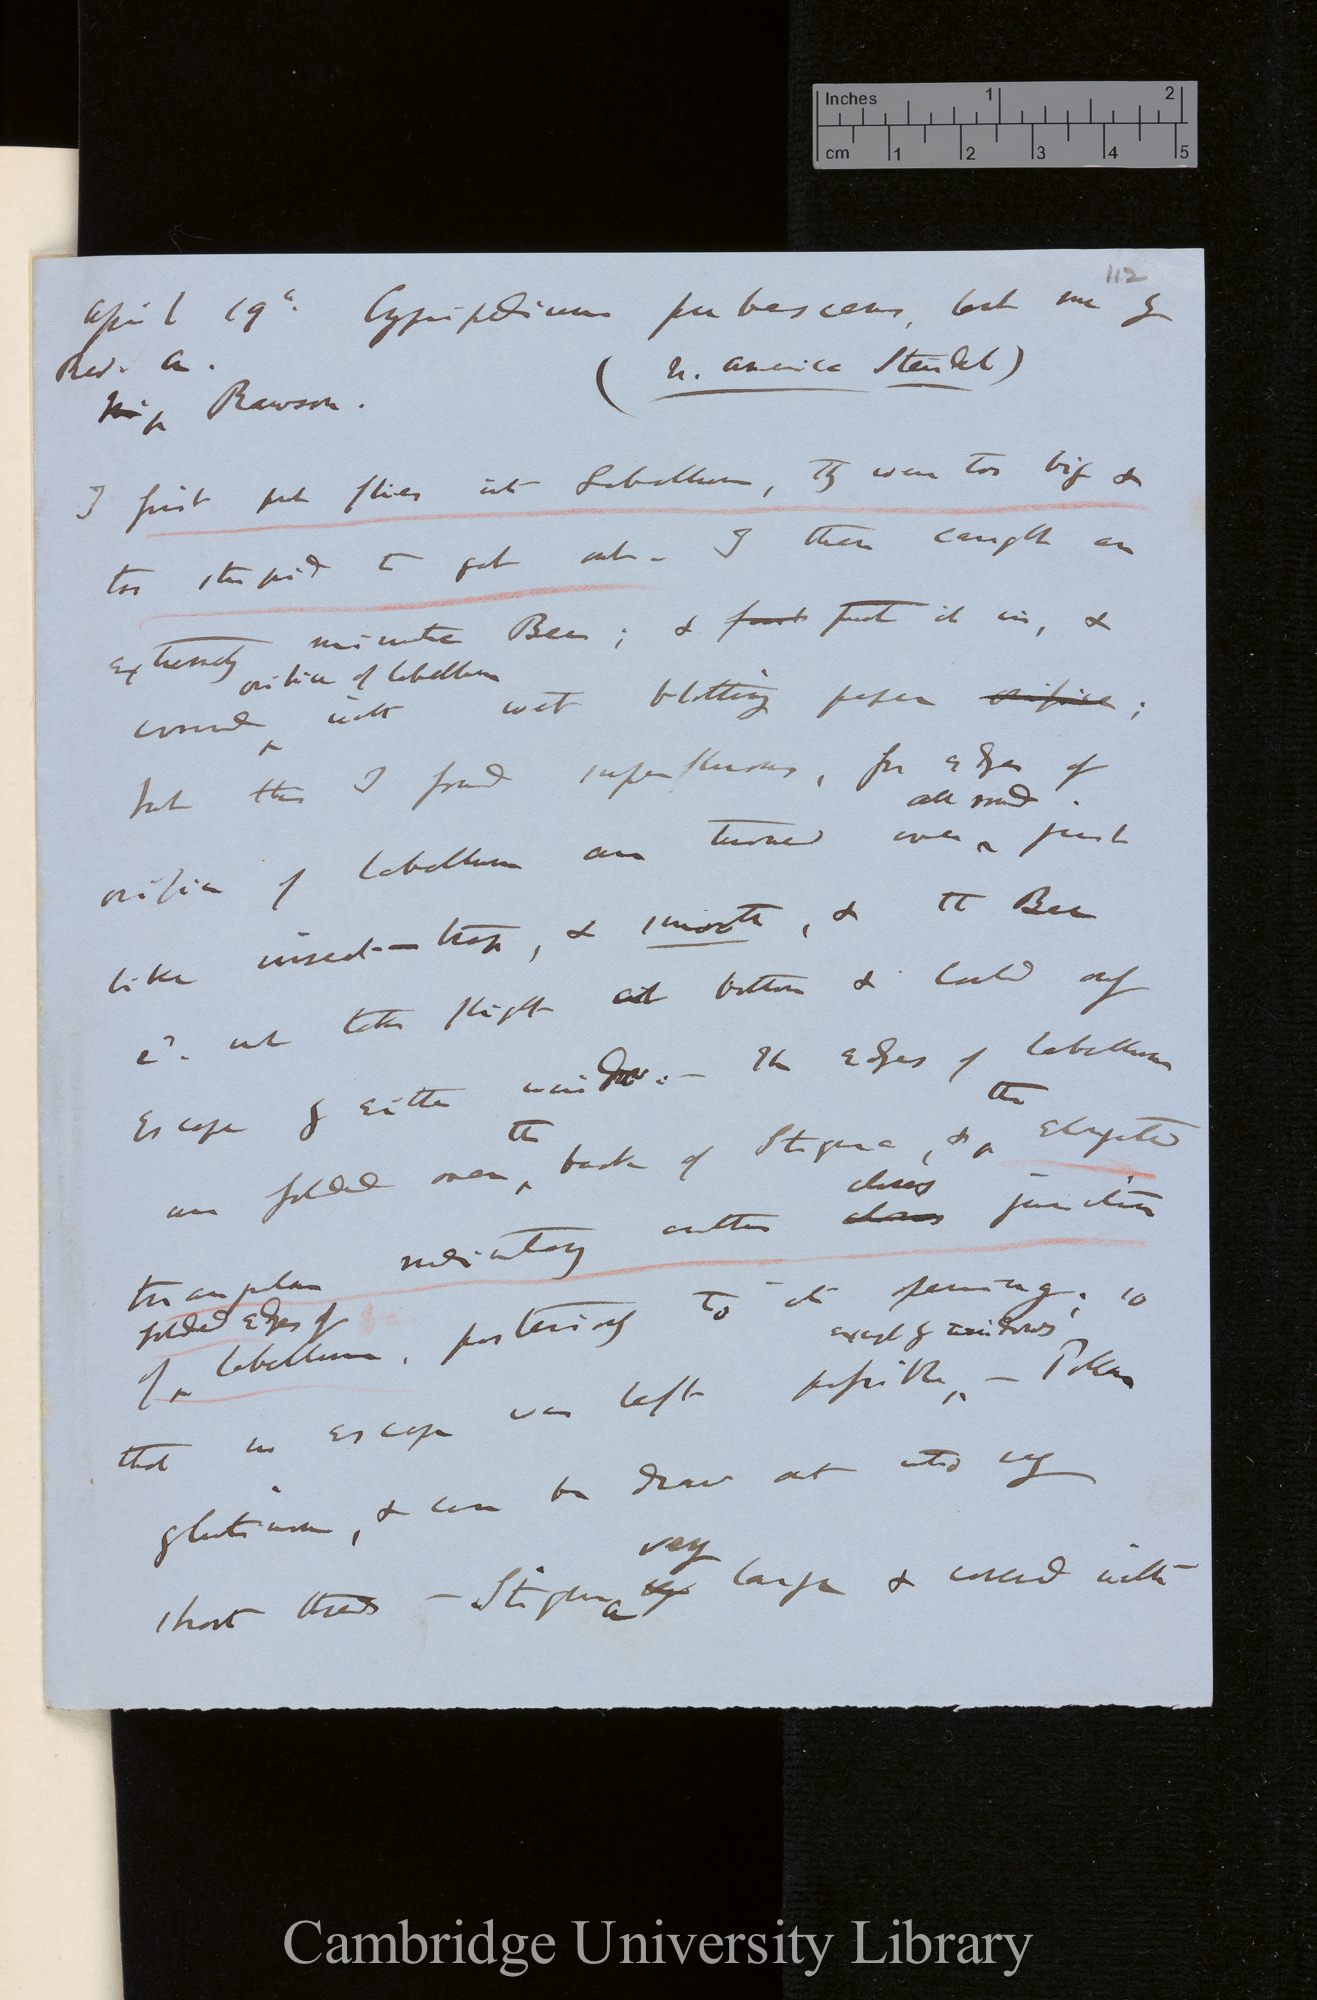 Inches 1 2
cm 1 2 3 4 5
112
April 19th. Cypripedium pubescens, lent me by
Rev. A.
Rawson.
(N. America Steudel)
I first put flies into Labellum, they were too big &
too stupid to get out. I then caught an
extremely minute Bee; & put it in, &
orifice of labellum
covered with wet blotting paper orifice;
but this I found superfluous, for edges of
all round
orifice of labellum are turned over, just
like insect-trap, & smooth, & the Bee
cd. not take flight at bottom & could only
escape by either window.— The edges of labellum
the the
are folded over, back of Stigma, & elongated
closes
triangular rudimentary anther closes junction
folded edges of
of labellum, posteriorly to its opening; so
except by windows
that no escape was left possible, — Pollen
glutinous, & can be drawn out into very
very
short threads — Stigma large & covered with
Cambridge University Library